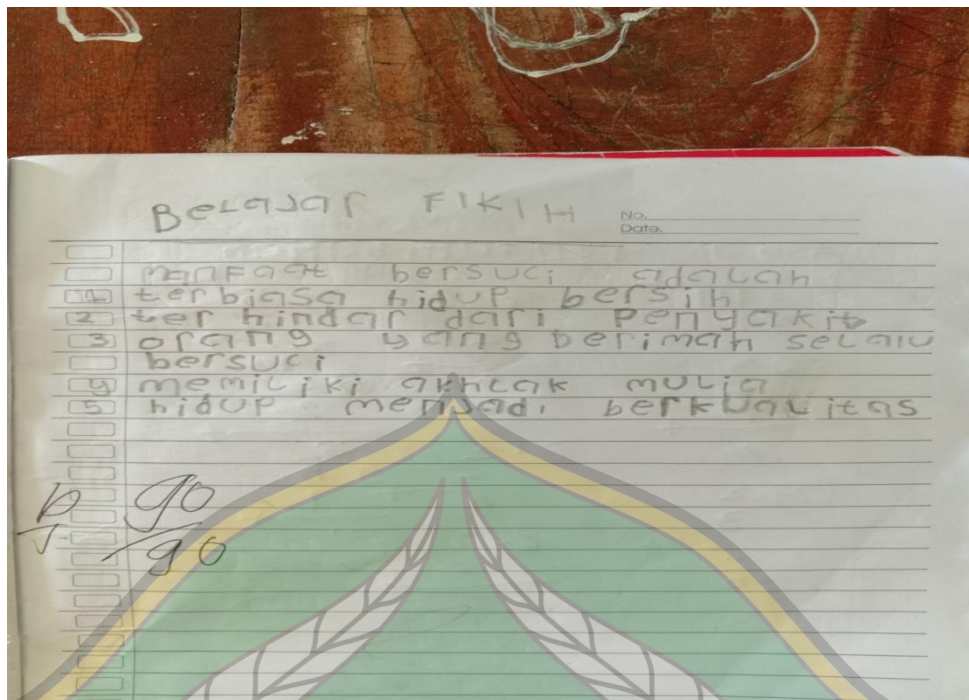 BeLaJar FIKIH
No.
Date.
manFaat bersuci adaLah
1 terbiasa hidup bersih
2 ter hindar dari Penyakit
3 orang yang berimah seLaLu
bersuci
4 memiLiki akhLak muLia
5 hidup menjadi berkuaLitas
90
90